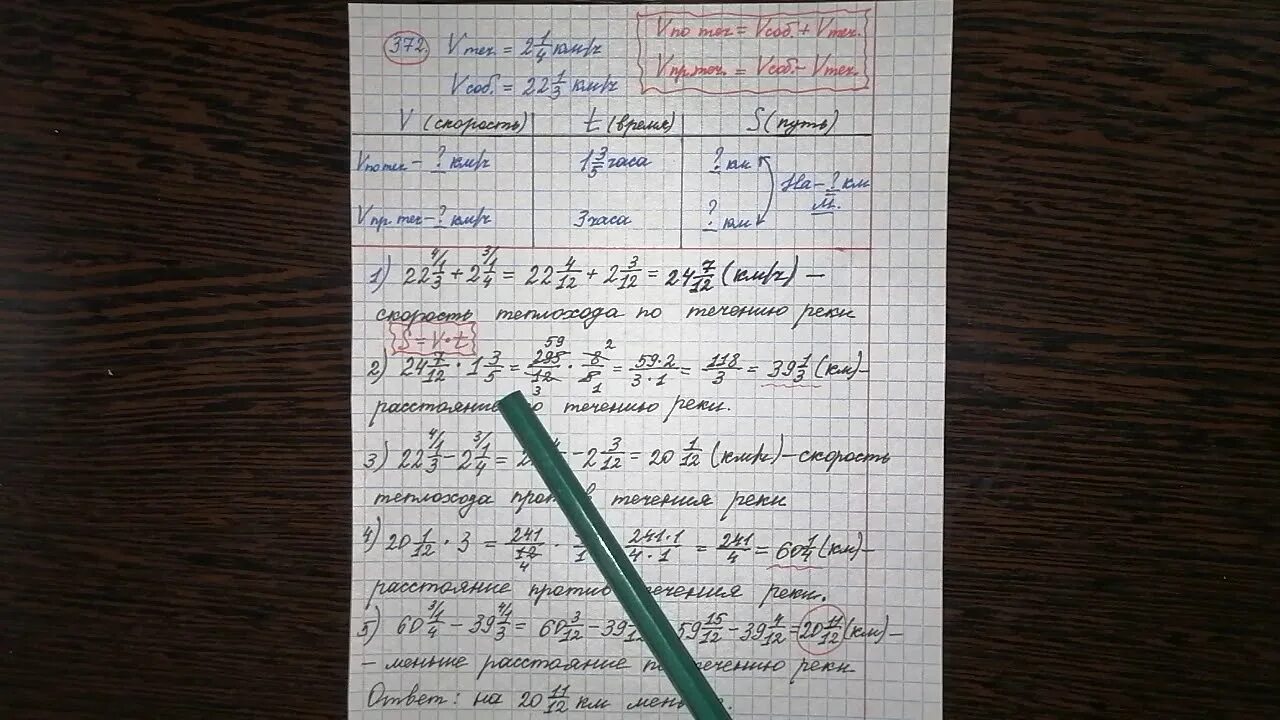 372. Vтеч. = 2 1/4 км/ч
Vсоб. = 22 1/3 км/ч
Vпо теч = Vсоб. + Vтеч.
Vпр.теч. = Vсоб. - Vтеч.
V (скорость) t (время) S (путь)
Vпо теч - ? км/ч 1 3/5 часа ? км
На - ? км
м.
Vпр. теч - ? км/ч 3 часа ? км
1) 22 1/3 + 2 1/4 = 22 4/12 + 2 3/12 = 24 7/12 (км/ч) —
скорость теплохода по течению реки
S = V · t
2) 24 7/12 · 1 3/5 = 295/12 · 8/5 = 59·2/3·1 = 118/3 = 39 1/3 (км) –
расстояние течению реки.
3) 22 1/3 - 2 1/4 = - 2 3/12 = 20 1/12 (км/ч) – скорость
теплохода течения реки
4) 20 1/12 · 3 = 241/12 · 241·1/4·1 = 241/4 = 60 1/4 (км) –
расстояние против течения реки.
5) 60 1/4 - 39 1/3 = 60 3/12 - 39 59 15/12 - 39 4/12 = 20 11/12 (км) –
- меньше расстояние по течению реки
Ответ: на 20 11/12 км